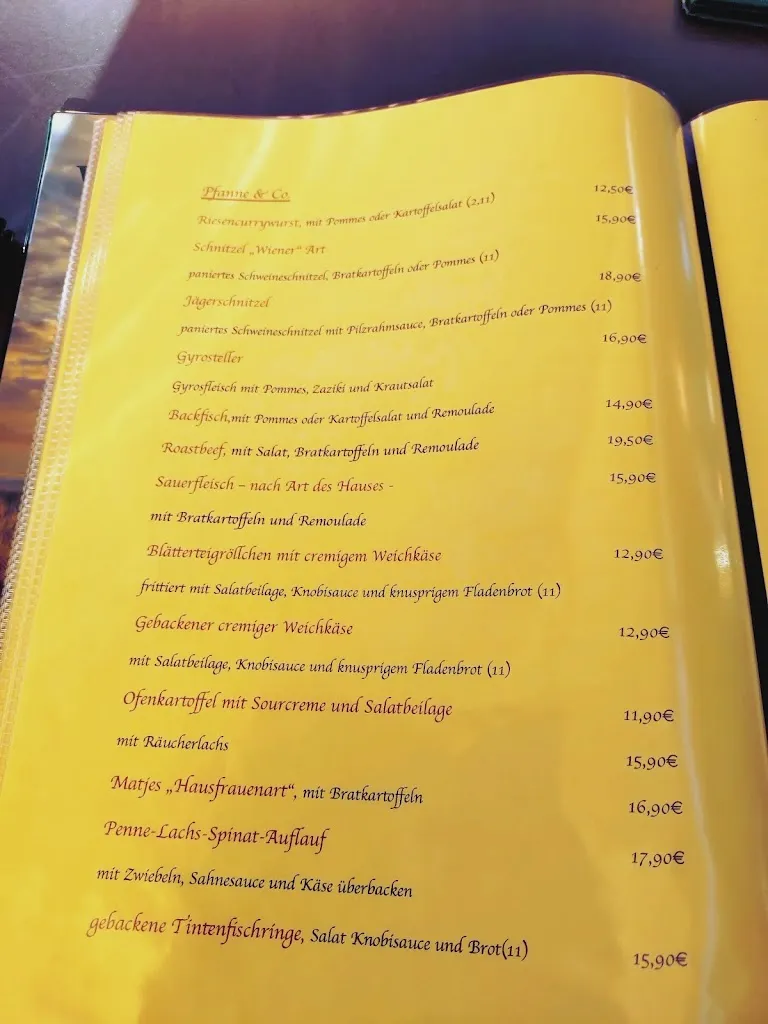 Pfanne & Co.
Riesencurrywurst, mit Pommes oder Kartoffelsalat (2,11) 12,50€
Schnitzel „Wiener“ Art 15,90€
paniertes Schweineschnitzel, Bratkartoffeln oder Pommes (11)
Jägerschnitzel 18,90€
paniertes Schweineschnitzel mit Pilzrahmsauce, Bratkartoffeln oder Pommes (11)
Gyrosteller 16,90€
Gyrosfleisch mit Pommes, Zaziki und Krautsalat
Backfisch,mit Pommes oder Kartoffelsalat und Remoulade 14,90€
Roastbeef, mit Salat, Bratkartoffeln und Remoulade 19,50€
Sauerfleisch – nach Art des Hauses - 15,90€
mit Bratkartoffeln und Remoulade
Blätterteigröllchen mit cremigem Weichkäse 12,90€
frittiert mit Salatbeilage, Knobisauce und knusprigem Fladenbrot (11)
Gebackener cremiger Weichkäse 12,90€
mit Salatbeilage, Knobisauce und knusprigem Fladenbrot (11)
Ofenkartoffel mit Sourcreme und Salatbeilage 11,90€
mit Räucherlachs 15,90€
Matjes „Hausfrauenart“, mit Bratkartoffeln 16,90€
Penne-Lachs-Spinat-Auflauf 17,90€
mit Zwiebeln, Sahnesauce und Käse überbacken
gebackene Tintenfischringe, Salat Knobisauce und Brot(11) 15,90€